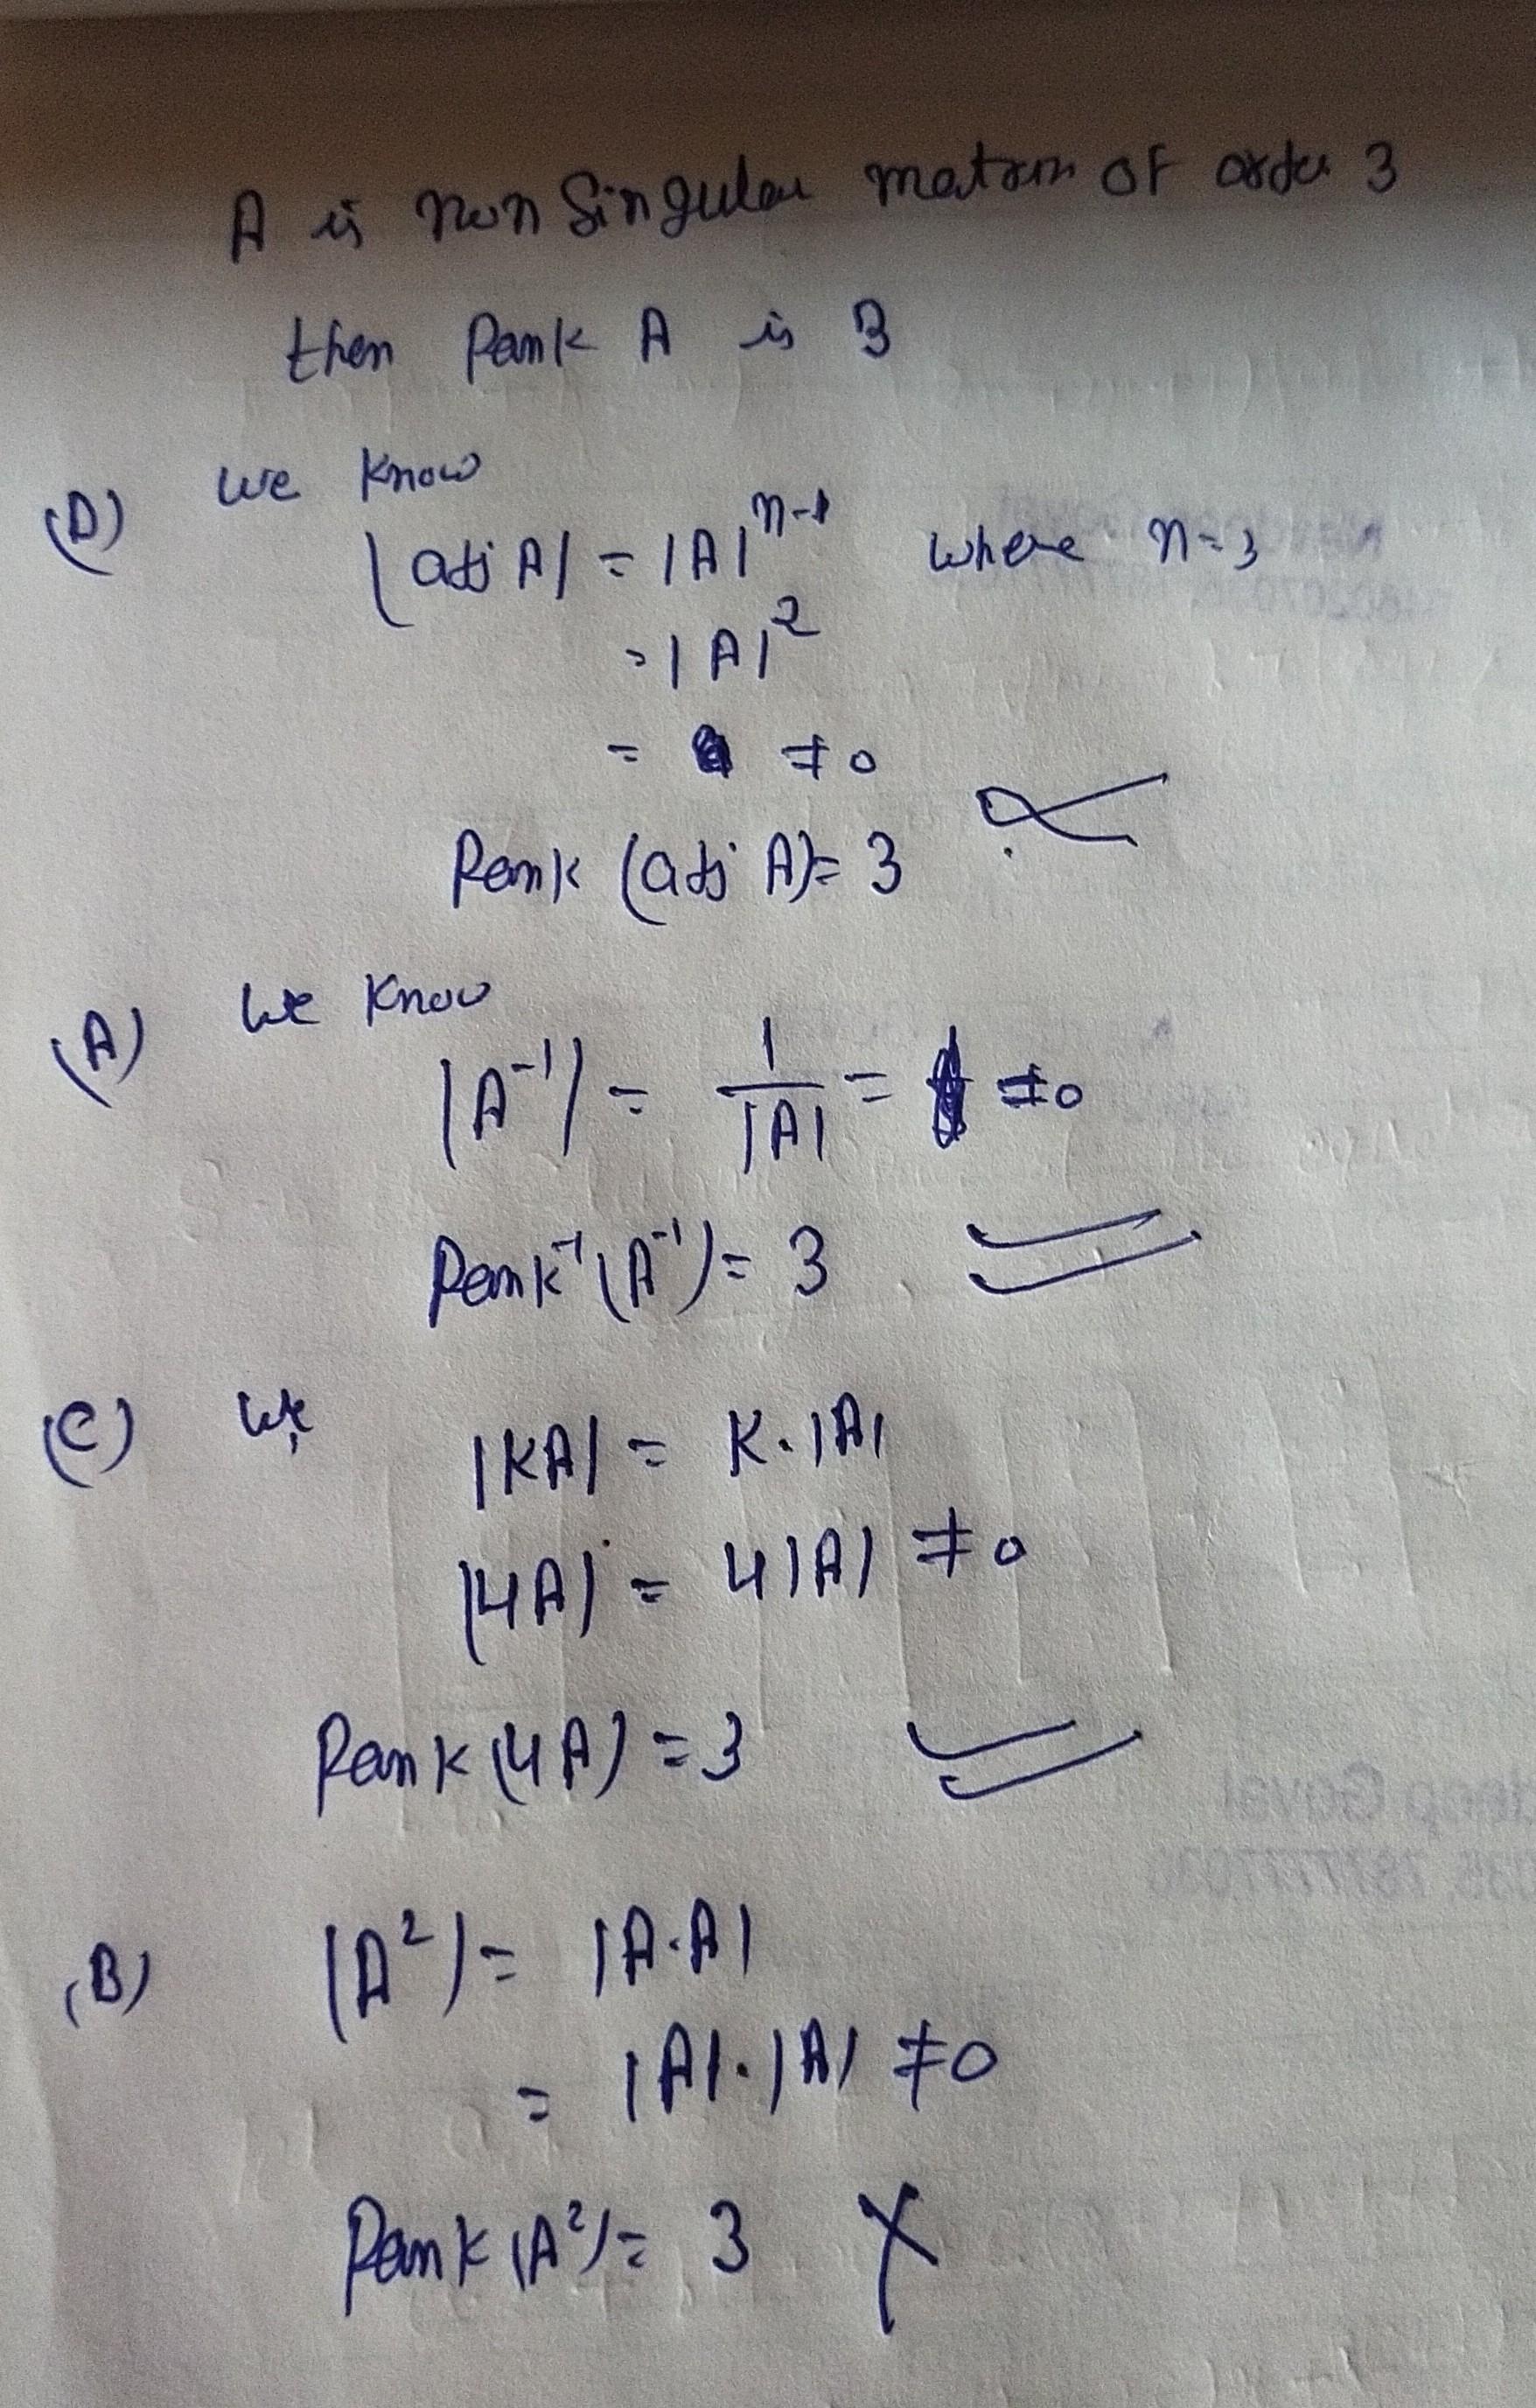 A is non Singular matrix of order 3
then Rank A is 3
(D) we know
|adj A| = |A|^n-1 where n=3
= |A|^2
= ≠0
Rank (adj A)= 3
(A) we know
|A^-1| = 1/|A| = ≠0
Rank^-1 (A^-1)= 3
(C) we
|KA| = K.|A|
|4A| = 4|A| ≠0
Rank (4A) =3
(B) |A^2| = |A.A|
= |A|.|A| ≠0
Rank (A^2)= 3 X